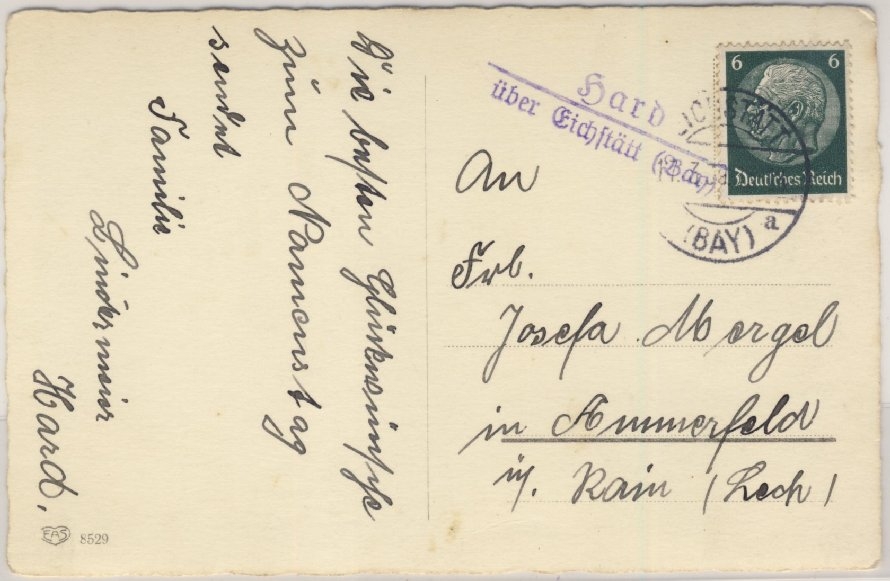 Die besten Glückwünsche
zum Namenstag
sendet
Familie
Lindermeier
Hard.
EAS 8529
Hard
über Eichstätt (Bay)
6 6
Deutsches Reich
ICHSTÄTT
(BAY) a
An
Frl.
Josefa Mergel
in Ammerfeld
ü/. Rain (Lech)